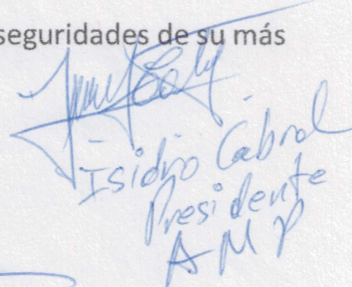 seguridades de su más
Isidro Cabral
Presidente
AMP